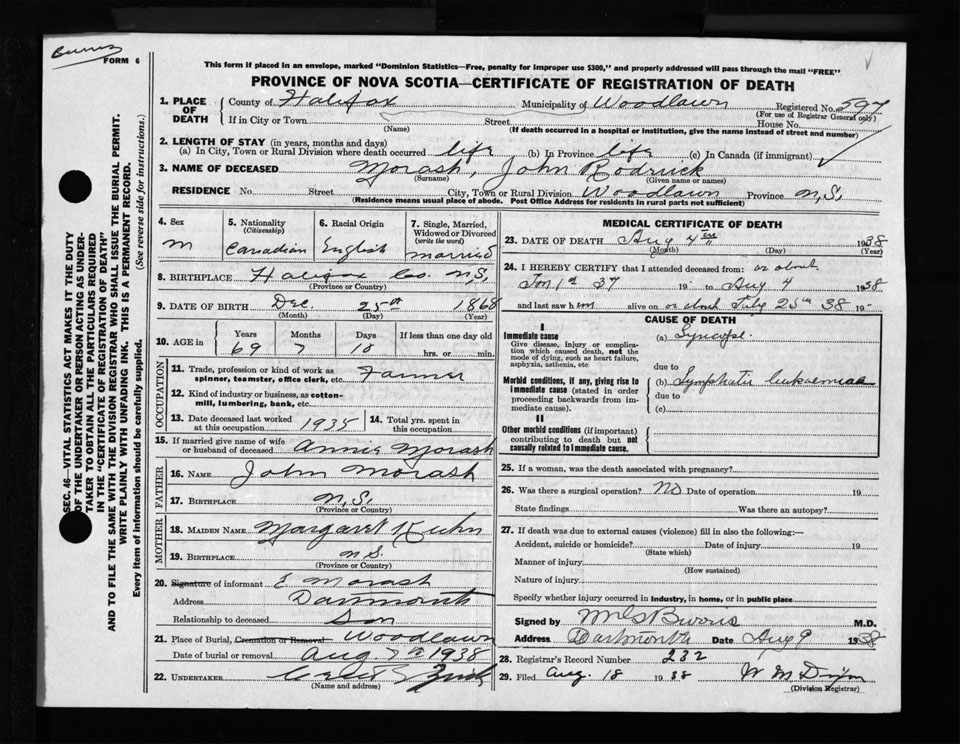 Burris
FORM 6
This form if placed in an envelope, marked "Dominion Statistics—Free, penalty for improper use $300," and properly addressed will pass through the mail "FREE"
PROVINCE OF NOVA SCOTIA—CERTIFICATE OF REGISTRATION OF DEATH
1. PLACE OF DEATH
County of Halifax Municipality of Woodlawn Registered No. 597
(For use of Registrar General only)
If in City or Town Street House No.
(Name) (If death occurred in a hospital or institution, give the name instead of street and number)
2. LENGTH OF STAY (in years, months and days)
(a) In City, Town or Rural Division where death occurred life (b) In Province life (c) In Canada (if immigrant)
3. NAME OF DECEASED Morash, John Rodrick
(Surname) (Given name or names)
RESIDENCE No. Street City, Town or Rural Division Woodlawn Province N.S.
(Residence means usual place of abode. Post Office Address for residents in rural parts not sufficient)
4. Sex
M
5. Nationality
(Citizenship)
Canadian
6. Racial Origin
English
7. Single, Married, Widowed or Divorced
(write the word)
Married
8. BIRTHPLACE Halifax Co. N.S.
(Province or Country)
9. DATE OF BIRTH Dec. 25th 1868
(Month) (Day) (Year)
10. AGE in
Years Months Days If less than one day old
69 7 10 hrs. or min.
OCCUPATION
11. Trade, profession or kind of work as
spinner, teamster, office clerk, etc. Farmer
12. Kind of industry or business, as cotton-
mill, lumbering, bank, etc.
13. Date deceased last worked at this occupation 1935
14. Total yrs. spent in this occupation
15. If married give name of wife
or husband of deceased Annie Morash
FATHER
16. NAME John Morash
17. BIRTHPLACE N.S.
(Province or Country)
MOTHER
18. MAIDEN NAME Margaret Kuhn
19. BIRTHPLACE N.S.
(Province or Country)
20. Signature of informant E Morash
Address Dartmouth
Relationship to deceased Son
21. Place of Burial, Cremation or Removal Woodlawn
Date of burial or removal Aug 7th 1938
22. UNDERTAKER
(Name and address)
MEDICAL CERTIFICATE OF DEATH
23. DATE OF DEATH Aug 4th 1938
(Month) (Day) (Year)
24. I HEREBY CERTIFY that I attended deceased from: or about
Jan 1st 37 19 to Aug 4 1938
and last saw him alive on or about July 25th 38 19
CAUSE OF DEATH
I
Immediate cause
Give disease, injury or complica-
tion which caused death, not the
mode of dying, such as heart failure,
asphyxia, asthenia, etc.
(a) Syncope
due to
Morbid conditions, if any, giving rise to
immediate cause (stated in order
proceeding backwards from im-
mediate cause).
(b) Lymphatic leukaemia
due to
(c)
II
Other morbid conditions (if important)
contributing to death but not
causally related to immediate cause.
25. If a woman, was the death associated with pregnancy?
26. Was there a surgical operation? No Date of operation 19
State findings Was there an autopsy?
27. If death was due to external causes (violence) fill in also the following:—
Accident, suicide or homicide? Date of injury 19
(State which)
Manner of injury
(How sustained)
Nature of injury
Specify whether injury occurred in industry, in home, or in public place
Signed by Burris M.D.
Address Dartmouth Date Aug 9 1938
28. Registrar's Record Number 232
29. Filed Aug. 18 1938 W M
(Division Registrar)
SEC. 46—VITAL STATISTICS ACT MAKES IT THE DUTY
OF THE UNDERTAKER OR PERSON ACTING AS UNDER-
TAKER TO OBTAIN ALL THE PARTICULARS REQUIRED
IN THE "CERTIFICATE OF REGISTRATION OF DEATH"
AND TO FILE THE SAME WITH THE DIVISION REGISTRAR WHO SHALL ISSUE THE BURIAL PERMIT.
WRITE PLAINLY WITH UNFADING INK. THIS IS A PERMANENT RECORD.
Every item of information should be carefully supplied. (See reverse side for instructions.)